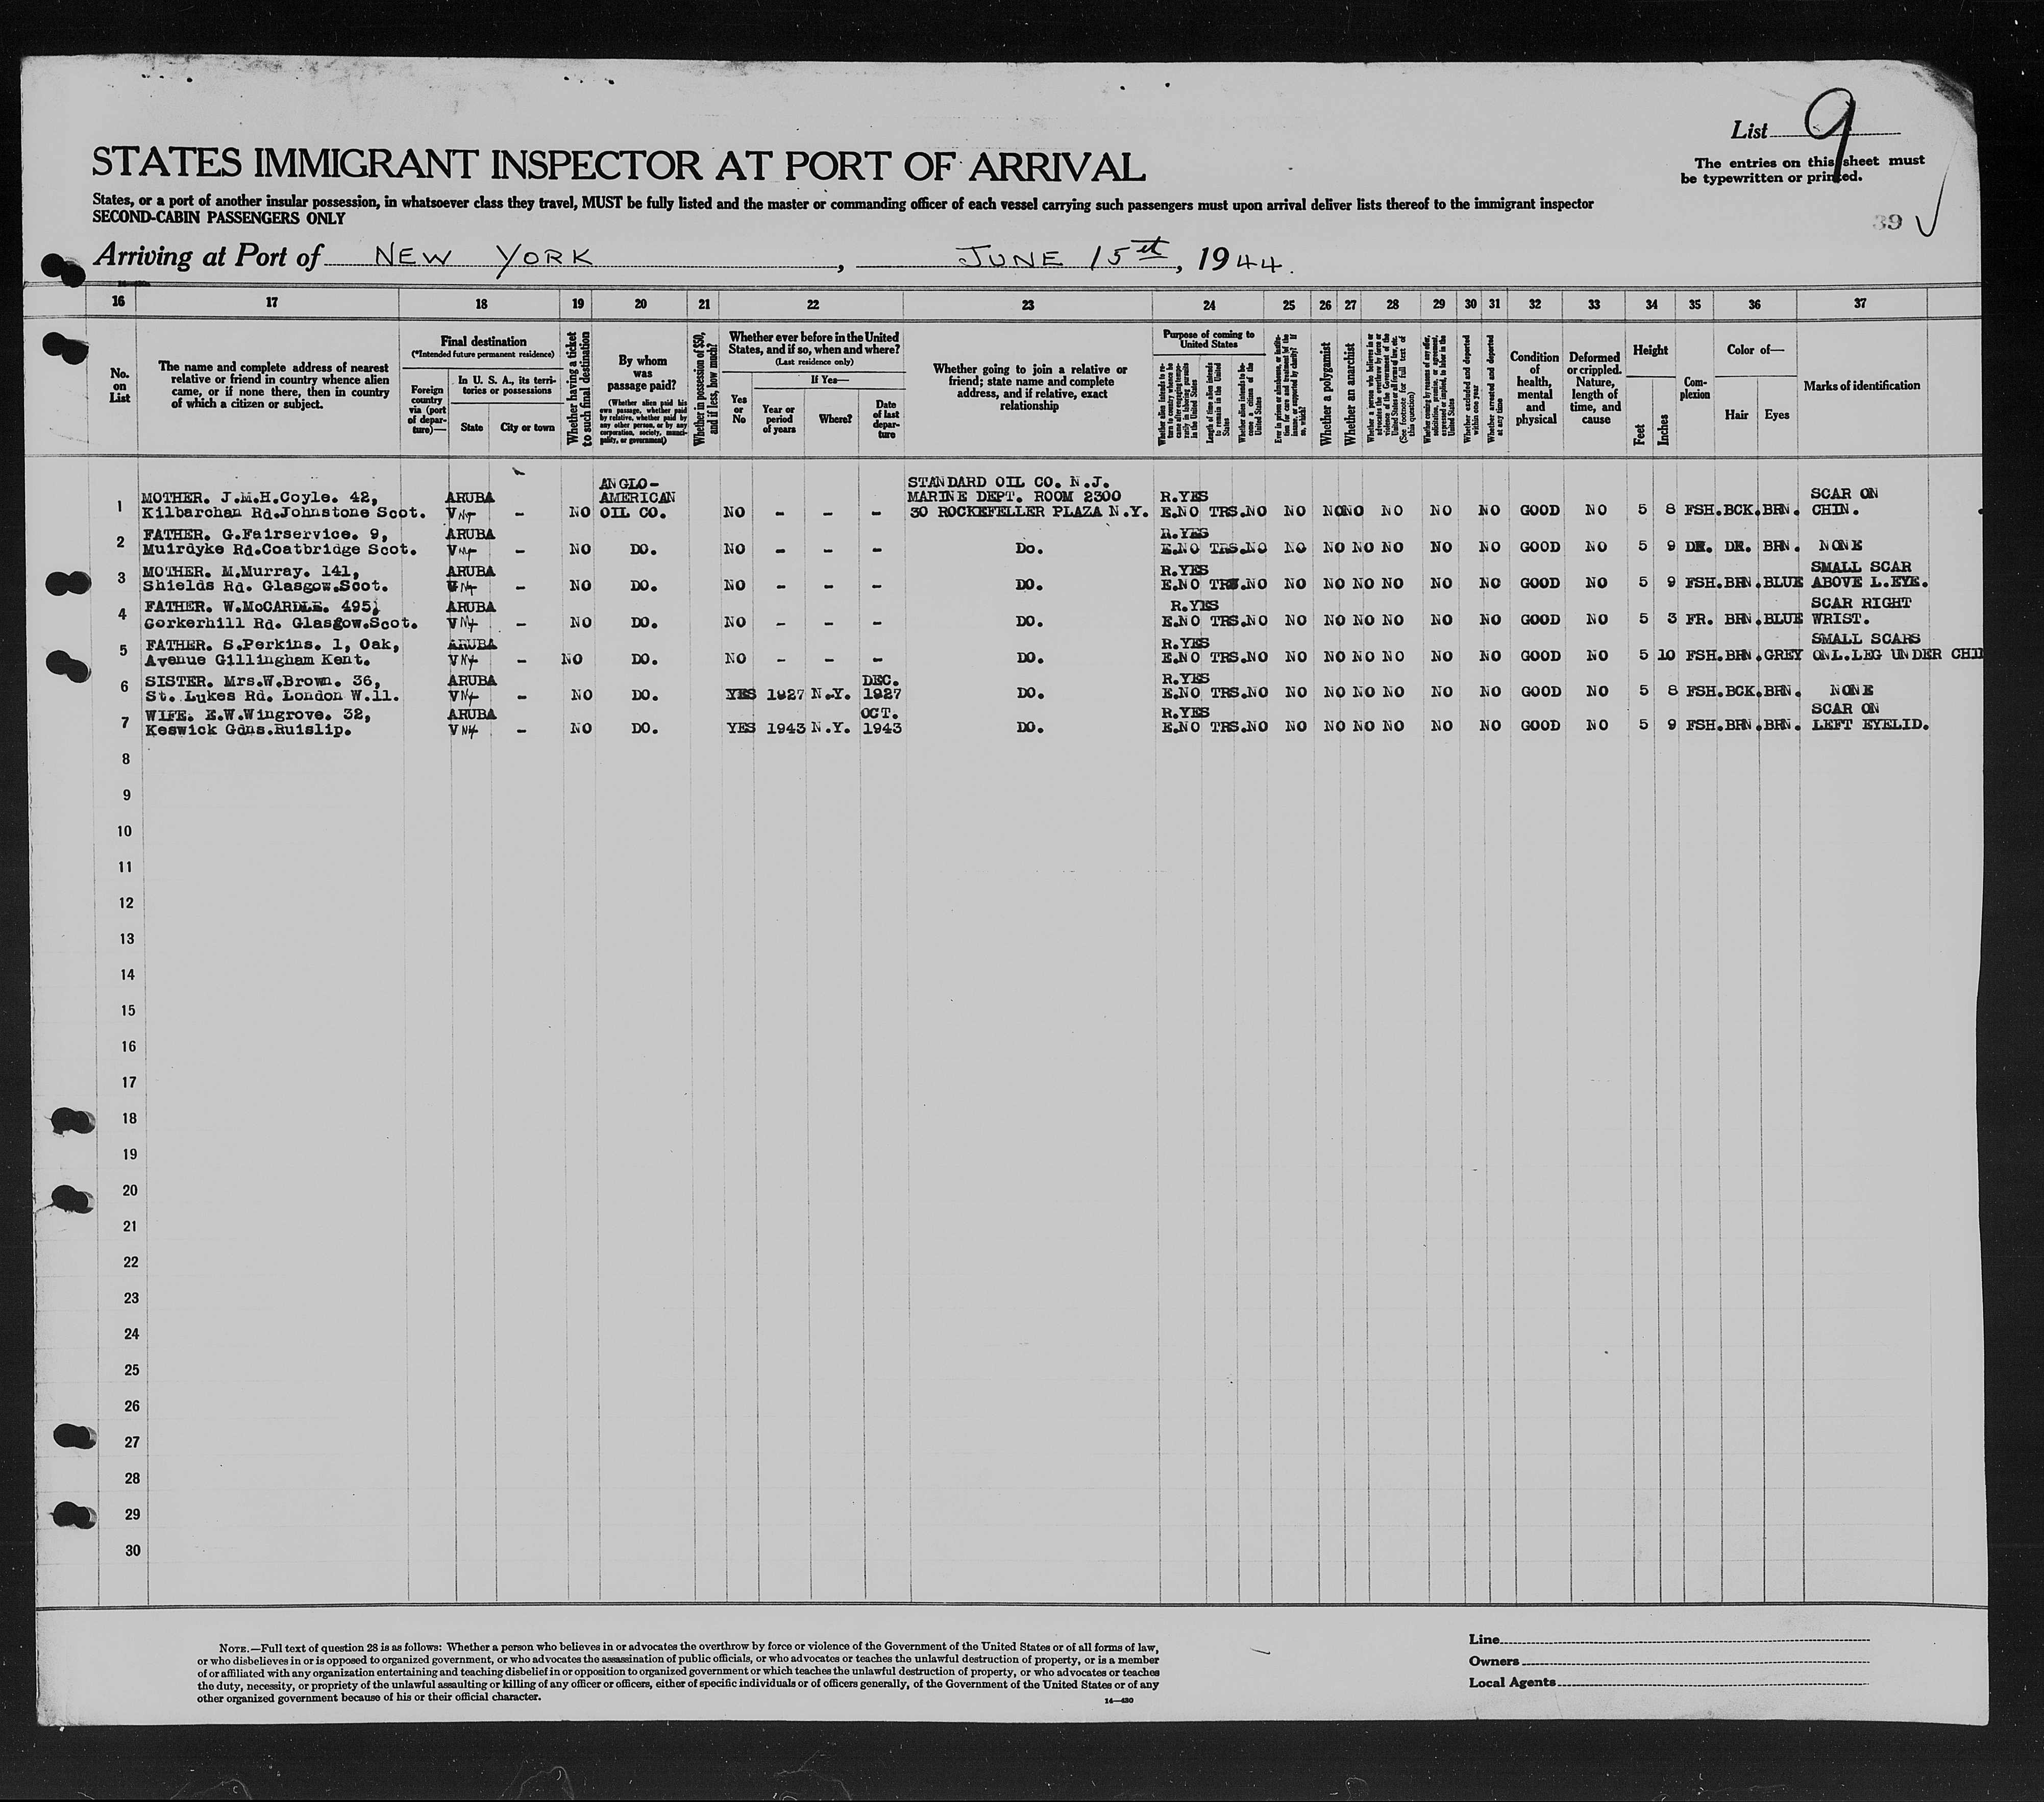 List 9
The entries on this sheet must
be typewritten or printed.
39
STATES IMMIGRANT INSPECTOR AT PORT OF ARRIVAL
States, or a port of another insular possession, in whatsoever class they travel, MUST be fully listed and the master or commanding officer of each vessel carrying such passengers must upon arrival deliver lists thereof to the immigrant inspector
SECOND-CABIN PASSENGERS ONLY
Arriving at Port of NEW YORK, JUNE 15st, 1944.
16 17 18 19 20 21 22 23 24 25 26 27 28 29 30 31 32 33 34 35 36 37
No. on List
The name and complete address of nearest
relative or friend in country whence alien
came, or if none there, then in country
of which a citizen or subject.
Final destination
(*Intended future permanent residence)
Foreign country via (port of departure)—
In U. S. A., its territories or possessions
State
City or town
Whether having a ticket to such final destination
By whom was passage paid?
(Whether alien paid his own passage, whether paid by relative, whether paid by any other person, or by any corporation, society, municipality, or government)
Whether in possession of $50, and if less, how much?
Whether ever before in the United
States, and if so, when and where?
(Last residence only)
Yes or No
If Yes—
Year or period of years
Where?
Date of last departure
Whether going to join a relative or
friend; state name and complete
address, and if relative, exact
relationship
Purpose of coming to United States
Length of time alien intends to remain in the United States
Whether alien intends to become a citizen of the United States
Whether a polygamist
Whether an anarchist
Whether excluded and deported within one year
Whether arrested and deported at any time
Condition of health, mental and physical
Deformed or crippled. Nature, length of time, and cause
Height
Feet
Inches
Complexion
Color of—
Hair
Eyes
Marks of identification
1 MOTHER. J.M.H.Coyle. 42, Kilbarchan Rd.Johnstone Scot. ARUBA V NY - NO ANGLO-AMERICAN OIL CO. NO - - - STANDARD OIL CO. N.J. MARINE DEPT. ROOM 2300 30 ROCKEFELLER PLAZA N.Y. R.YES E.NO TRS.NO NO NO NO NO NO NO GOOD NO 5 8 FSH.BCK.BRN. SCAR ON CHIN.
2 FATHER. G.Fairservice. 9, Muirdyke Rd.Coatbridge Scot. ARUBA V NY - NO DO. NO - - - Do. R.YES E.NO TRS.NO NO NO NO NO NO NO GOOD NO 5 9 DK. DK. BRN. NONE
3 MOTHER. M.Murray. 141, Shields Rd. Glasgow.Scot. ARUBA V NY - NO DO. NO - - - DO. R.YES E.NO TRS.NO NO NO NO NO NO NO GOOD NO 5 9 FSH.BRN.BLUE SMALL SCAR ABOVE L.EYE.
4 FATHER. W.McCARDLE. 495, Corkerhill Rd. Glasgow.Scot. ARUBA V NY - NO DO. NO - - - DO. R.YES E.NO TRS.NO NO NO NO NO NO NO GOOD NO 5 3 FR. BRN.BLUE SCAR RIGHT WRIST.
5 FATHER. S.Perkins. 1, Oak, Avenue Gillingham Kent. ARUBA V NY - NO DO. NO - - - DO. R.YES E.NO TRS.NO NO NO NO NO NO NO GOOD NO 5 10 FSH.BRN.GREY SMALL SCARS ONL.LEG UNDER CHIN
6 SISTER. Mrs.W.Brown. 36, St. Lukes Rd. London W.11. ARUBA V NY - NO DO. YES 1927 N.Y. DEC. 1927 DO. R.YES E.NO TRS.NO NO NO NO NO NO NO GOOD NO 5 8 FSH.BCK.BRN. NONE
7 WIFE. E.W.Wingrove. 32, Keswick Gdns.Ruislip. ARUBA V NY - NO DO. YES 1943 N.Y. OCT. 1943 DO. R.YES E.NO TRS.NO NO NO NO NO NO NO GOOD NO 5 9 FSH.BRN.BRN. SCAR ON LEFT EYELID.
8
9
10
11
12
13
14
15
16
17
18
19
20
21
22
23
24
25
26
27
28
29
30
NOTE.—Full text of question 28 is as follows: Whether a person who believes in or advocates the overthrow by force or violence of the Government of the United States or of all forms of law,
or who disbelieves in or is opposed to organized government, or who advocates the assassination of public officials, or who advocates or teaches the unlawful destruction of property, or is a member
of or affiliated with any organization entertaining and teaching disbelief in or opposition to organized government or which teaches the unlawful destruction of property, or who advocates or teaches
the duty, necessity, or propriety of the unlawful assaulting or killing of any officer or officers, either of specific individuals or of officers generally, of the Government of the United States or of any
other organized government because of his or their official character.
14—430
Line
Owners
Local Agents